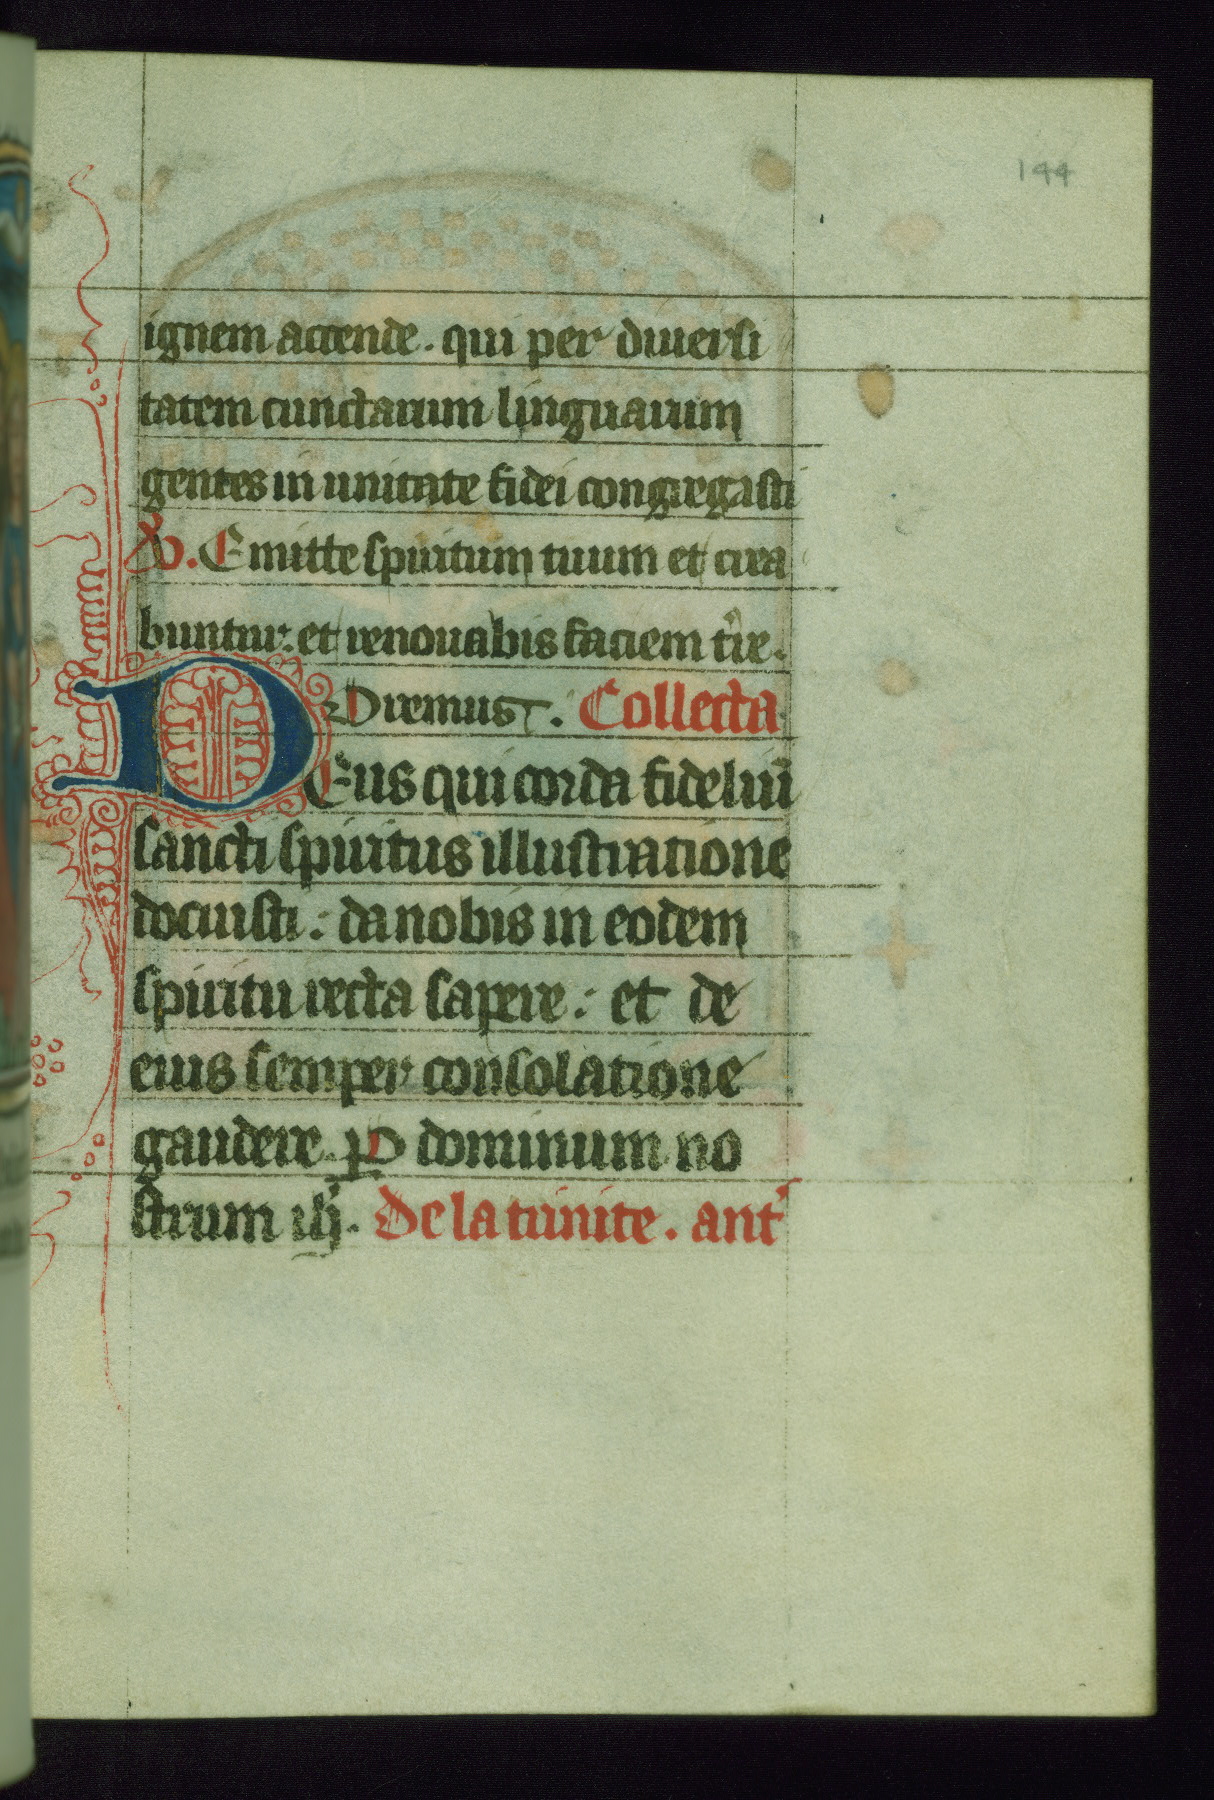 144
ignem accende. qui per diuersi
tatem cunctarum linguarum
gentes in unitate fidei congregasti
V. Emitte spiritum tuum et crea
buntur: et renouabis faciem t're.
Oremus. Collecta
Deus qui corda fideliū
sancti spiritus illustratione
docuisti: da nobis in eodem
spiritu recta sapere: et de
eius semper consolatione
gaudere. P dominum no
strum ih̄. De la trinite. ant'